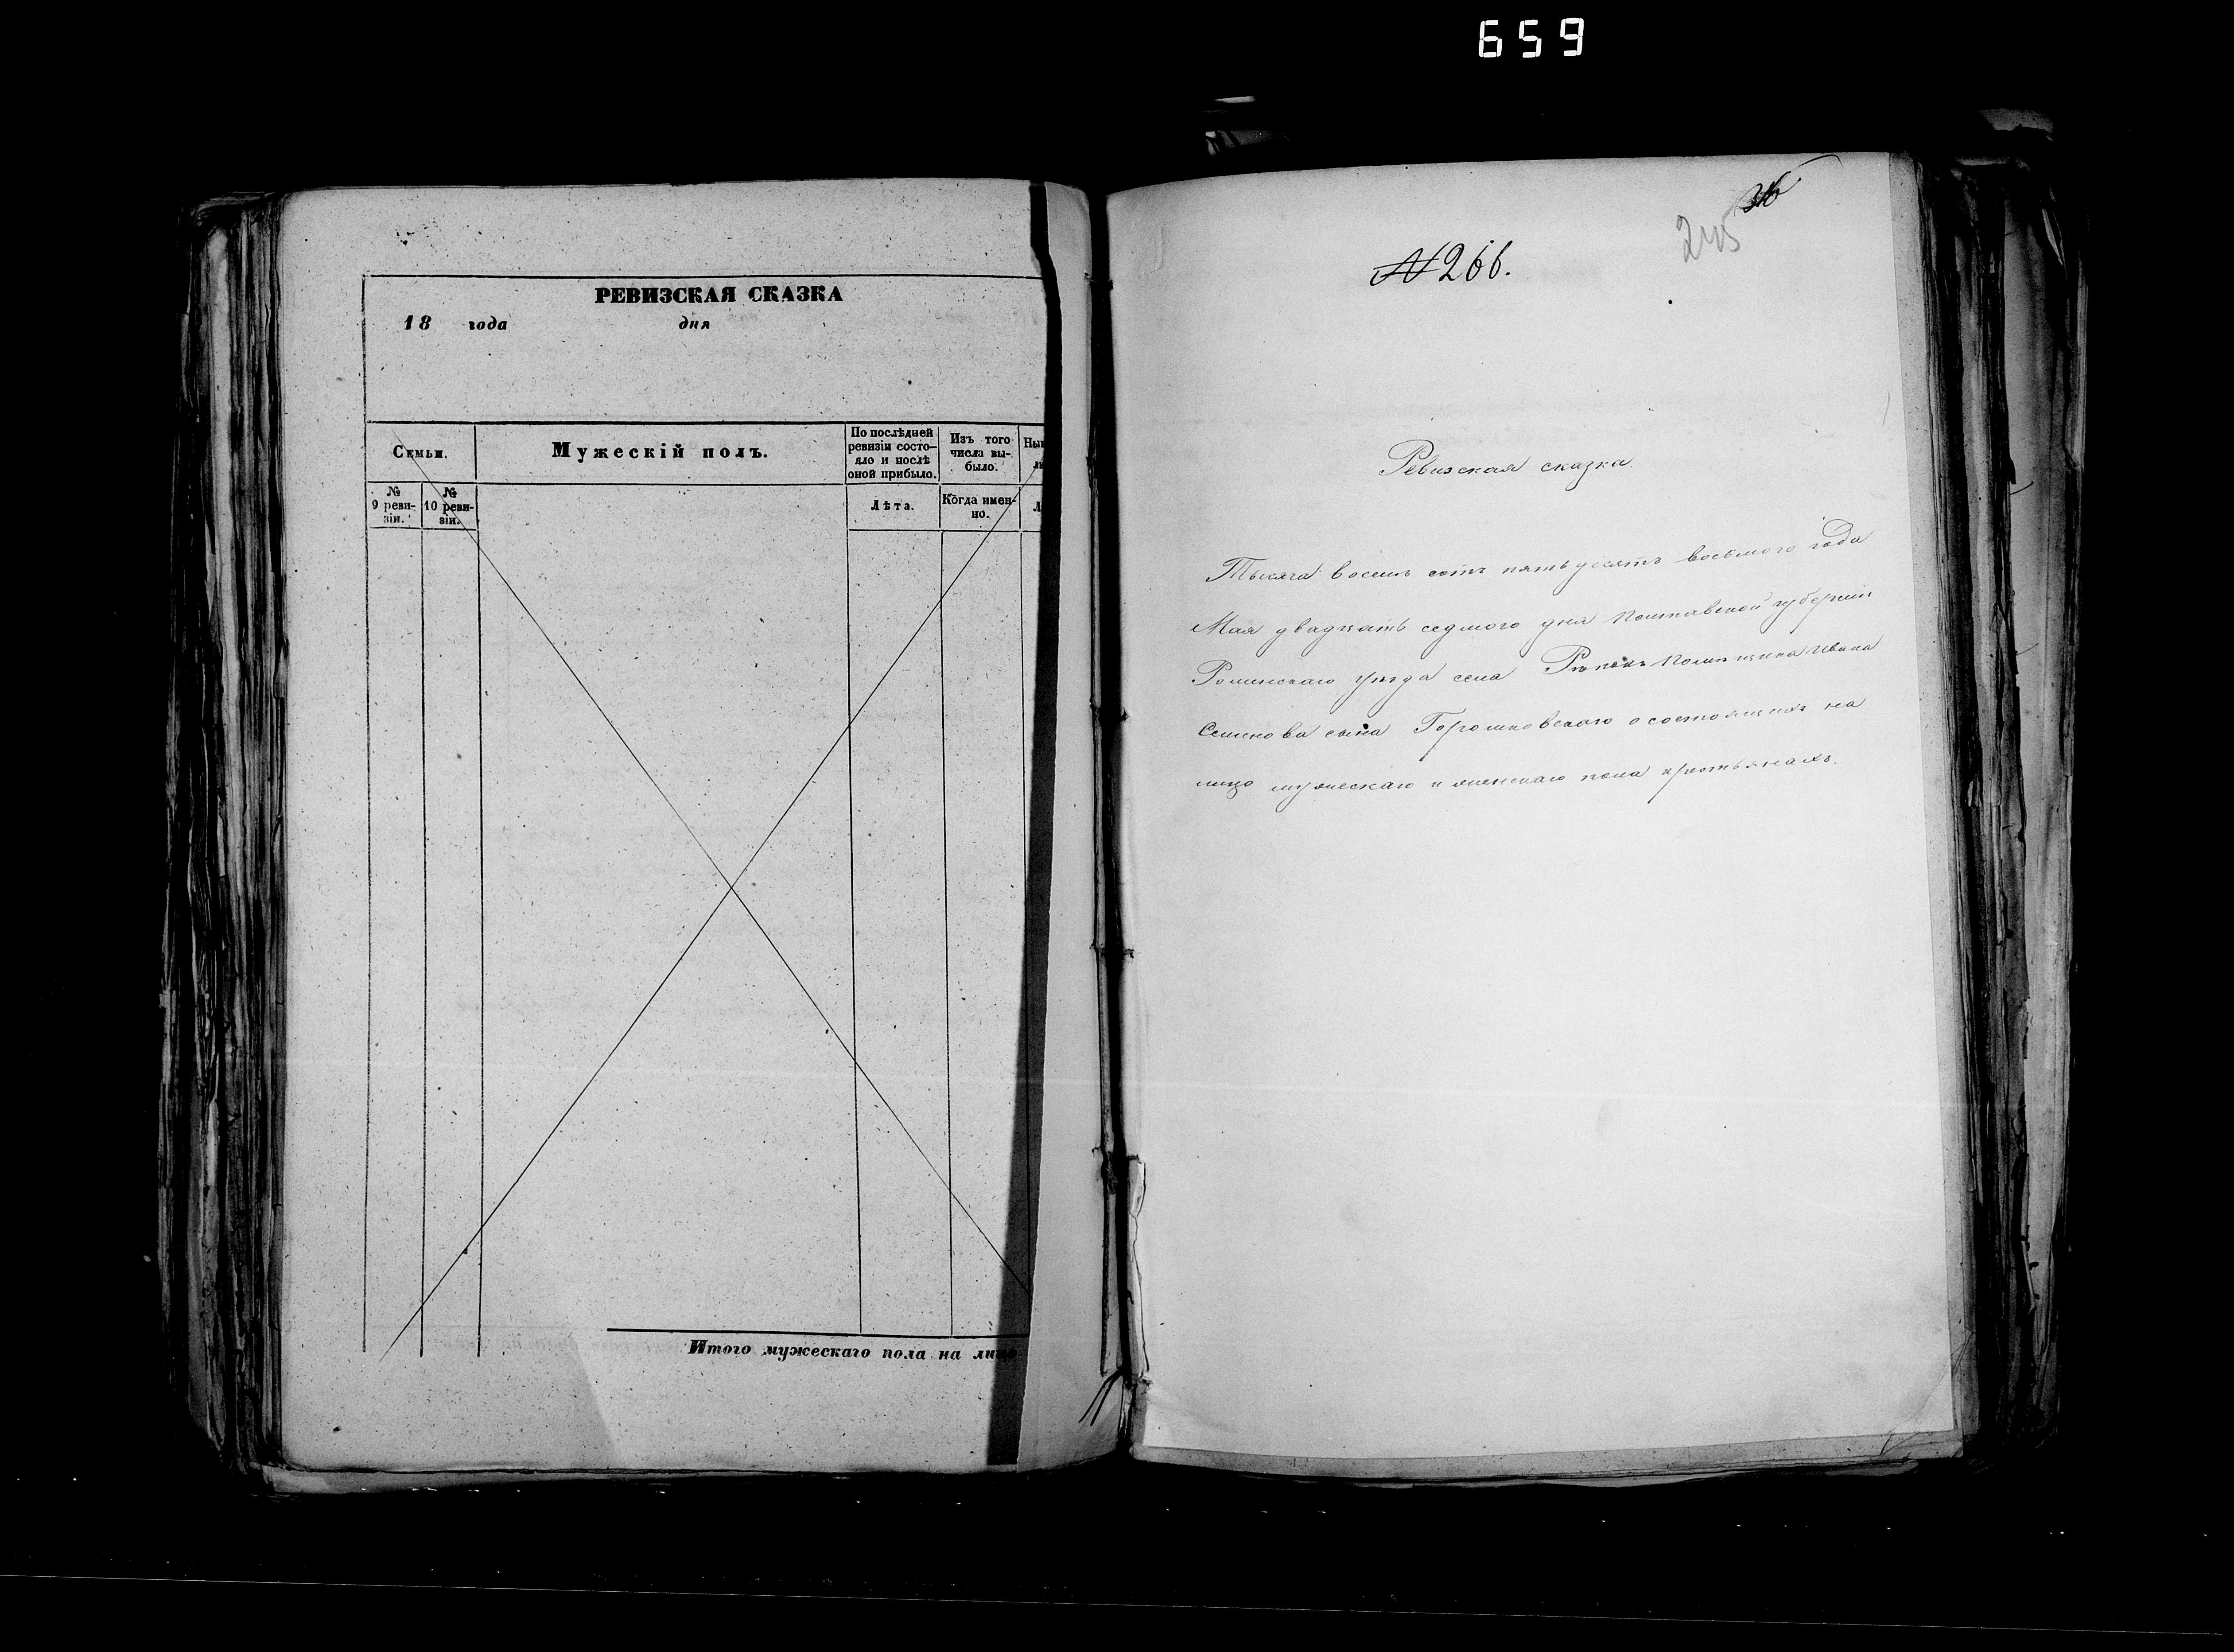 659
РЕВИЗСКАЯ СКАЗКА
18 года дня
Семьи.
Мужескій полъ.
По послѣдней ревизіи состо-
яло и послѣ оной прибыло.
Изъ того числа вы-
было.
№ 9 реви-
зіи.
№ 10 реви-
зіи.
Лѣта.
Когда имен-
но.
Итого мужескаго пола на лицо
245
№ 266.
Ревизская сказка.
Тысяча восемь сотъ пятьдесятъ восьмого года
Мая двадцать седмого дня Полтавской губерніи
Роменскаго уезда села помещика Ивана
Семенова сына Горошковскаго о состоящихъ на
лицо мужескаго и женскаго пола крестьянахъ.